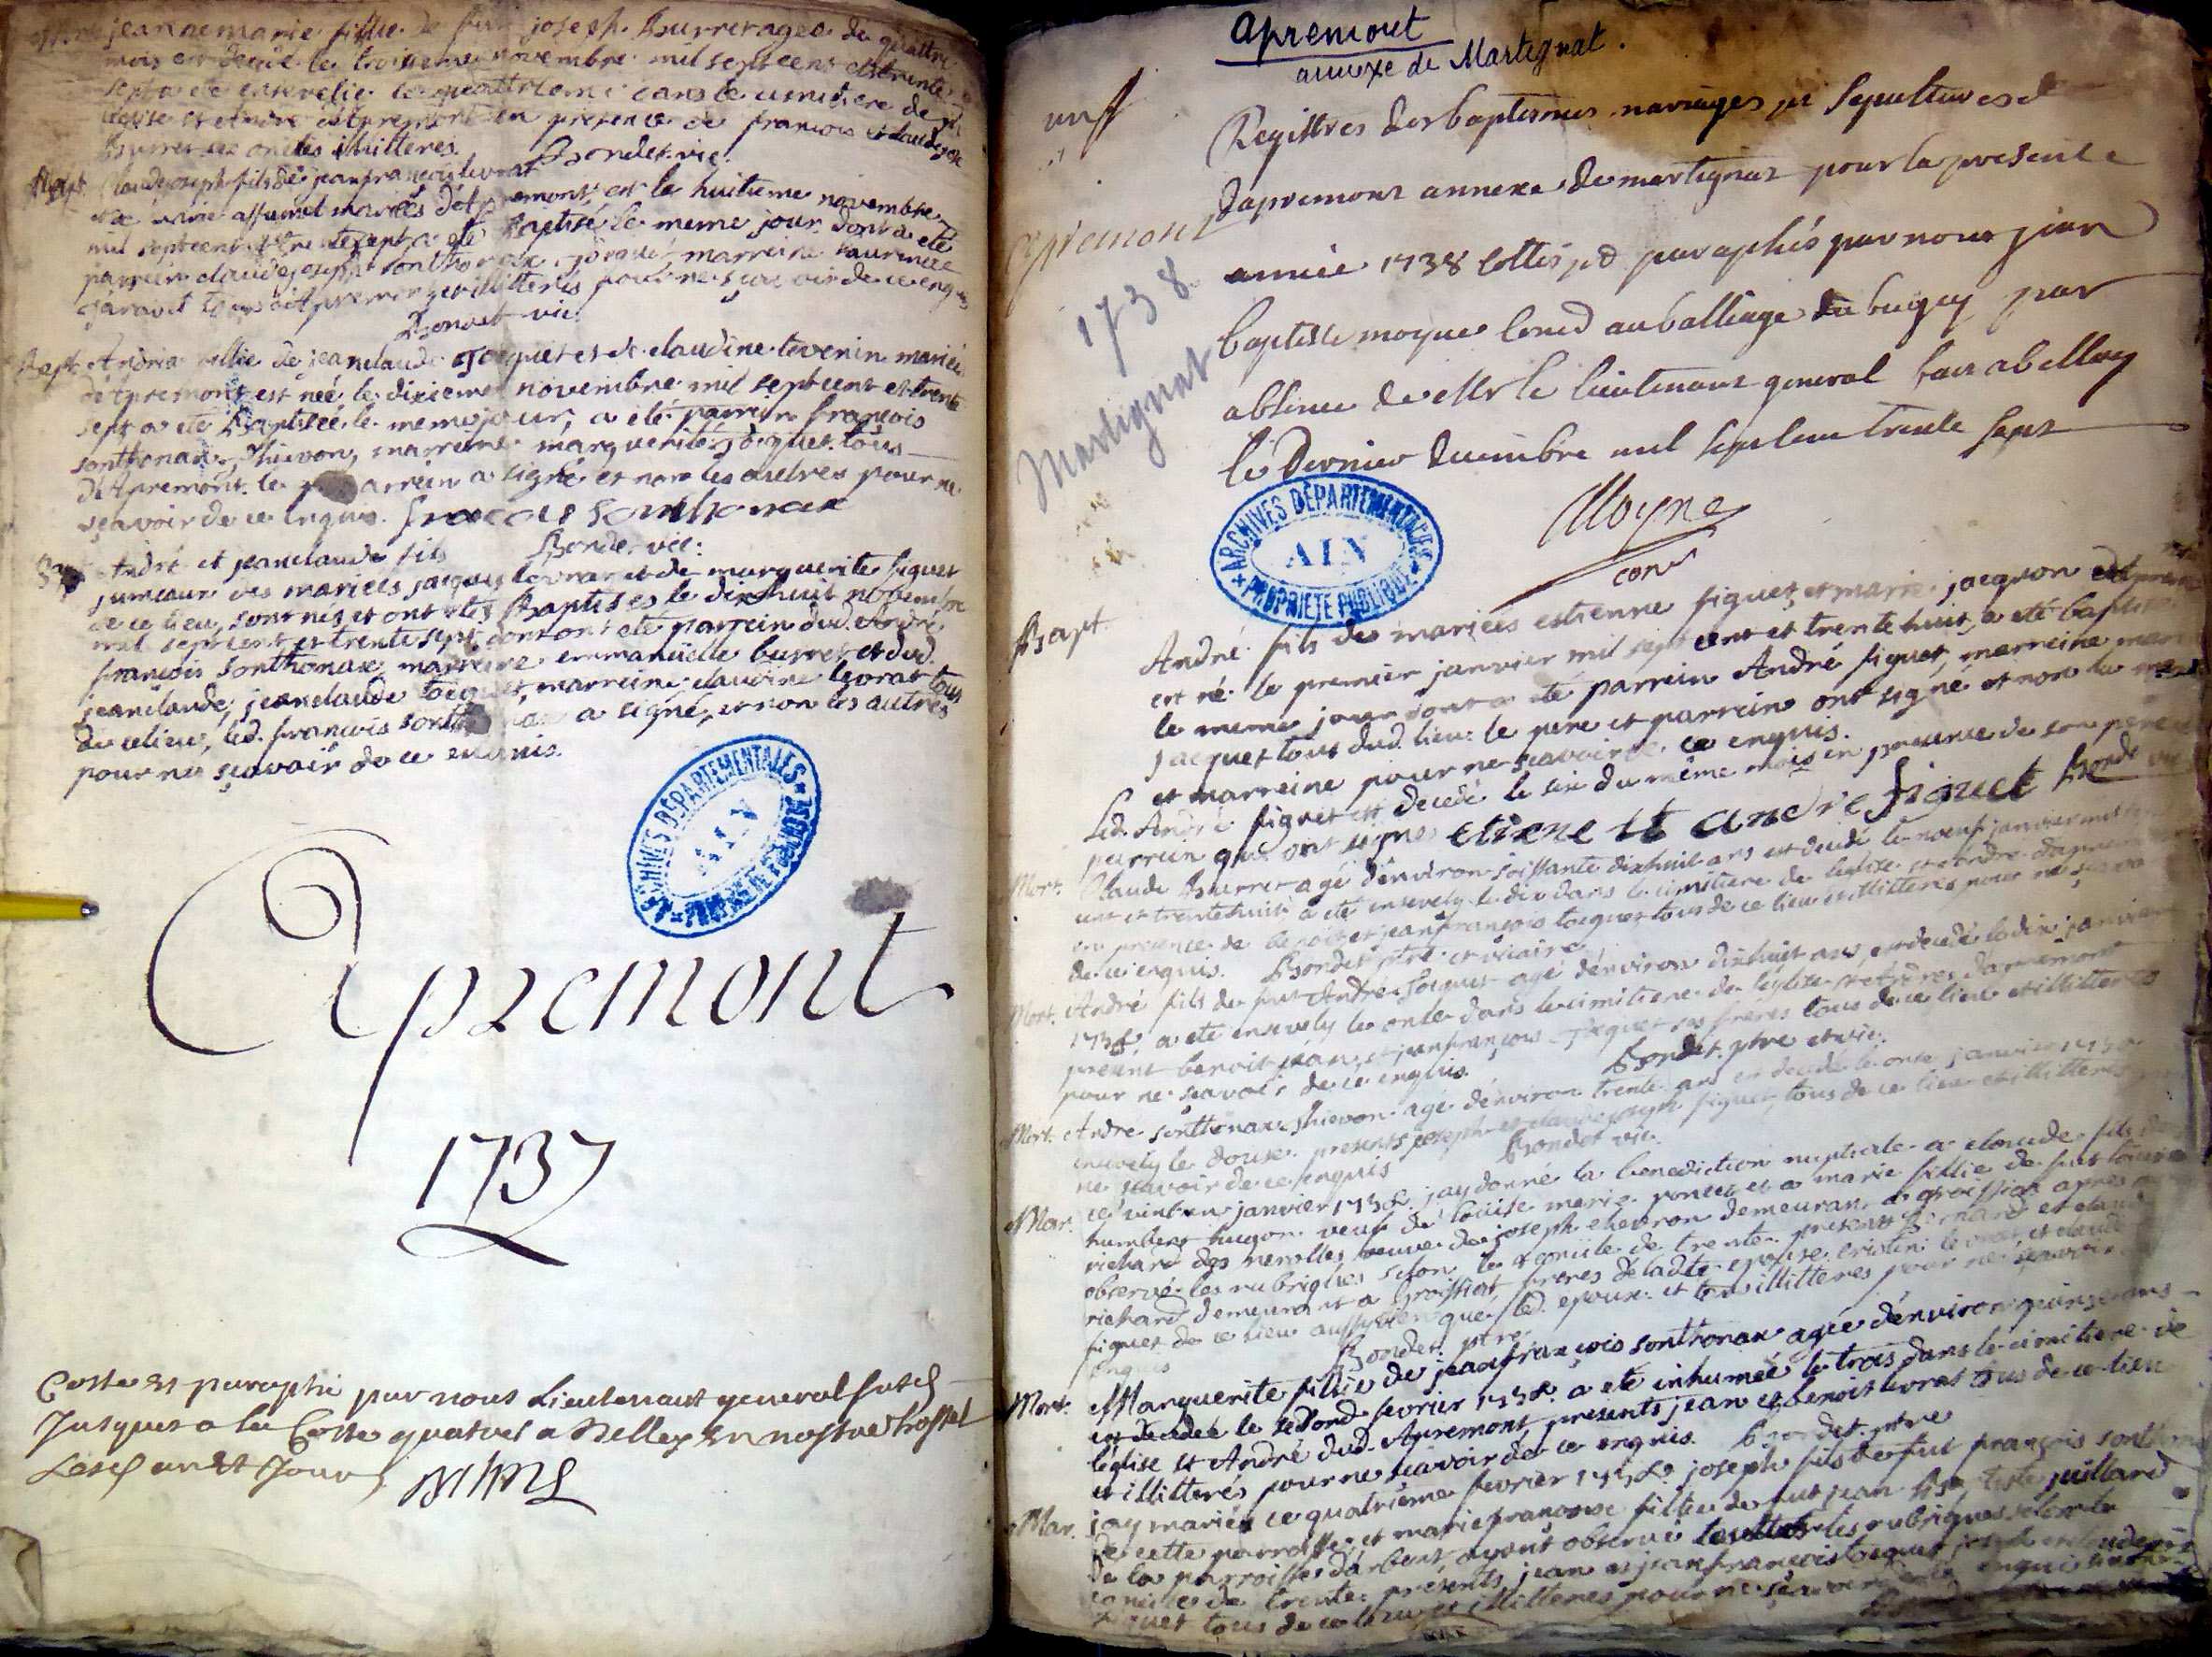 Mort jeanne marie fillie de feu joseph Burret agee de quattre
mois est decedé le troisieme novembre mil sept cent et trente
sept a eté ensevelie le quattrieme dans le cimitiere de
leglise st André d'Apremont en presence de francois et claude joseph
Burret ses oncles illitteres.
Bondet vic.
Bapt. Claude joseph fils de jean francois livrat
et de marie affumet mariés d'Apremont, est le huitieme novembre
mil sept cent et trente sept, a eté Baptisé le meme jour, dont a eté
parrein claude joseph sonthonax, marreine
tous d'Apremont et illitterés pour ne sçavoir de ce enquis
Bondet vic.
Bapt. Andréa fillie de jean claude Tocquet et de claudine tevenin mariés
d'Apremont est née le dixieme novembre mil sept cent et trente
sept a eté Baptisée le meme jour, a eté parrein francois
sonthonax, thievon, marreine marguerite tocquet tous
d'Apremont. le parrein a signé et non les autres pour ne
sçavoir de ce enquis. francois sonthonax
Bondet vic:
André et jean claude fils
jumeaux des mariées jacques levrat et de marguerite figuet
de ce lieu, sont nés et ont etés Baptisés le dixhuit novembre
mil sept cent et trente sept, dont ont eté parrein dud. André,
francois sonthonax, marreine emmanuelle burret et dud.
jean claude, jean claude tocquet, marreine claudine levrat tous
de ce lieu, led. francois sonthonax a signé, et non les autres
pour ne sçavoir de ce enquis.
ARCHIVES DÉPARTEMENTALES
AIN
PROPRIÉTÉ PUBLIQUE
Apremont
1737
Cotté et paraphé par nous Lieutenant general susd
Jusques a la Cotte quatre a Belley en nostre hostel
Lesd an et Jour
apremont
annexe de Martignat.
apremont
1738
Martignat
Registres des baptesmes mariages et sepultures de
dapremont annexe de martignat pour la presente
année 1738 cottés et paraphés par nous jean
baptiste moyne consd au balliage du bugey par
absence de Mr le lieutenant general fait a belley
le dernier decembre mil sept cent trente sept
Moyne
cons
ARCHIVES DÉPARTEMENTALES
AIN
PROPRIÉTÉ PUBLIQUE
Bapt. André fils des mariées estienne figuet, et marie jacquon
est né le premier janvier mil sept cent et trente huit, a eté baptisé
le meme jour dont a eté parrein André figuet, marreine
jacquet tous dud. lieu: le pere et parrein ont signé et non la
et marreine pour ne sçavoir de ce enquis.
Led. André figuet est decedé le six du même mois en presence de son pere
parrein qui ont signé etiene et andre figuet Bondet
Mort. Claude Burret agé d'environ soissante dixhuit ans est decedé le neuf janvier mil
cent et trente huit a eté ensevely le dix dans le cimitiere de leglise st andré
en presence de benoit et jean francois tocquet tous de ce lieu et illitterés pour ne sçavoir
de ce enquis. Bondet ptre et vicaire
Mort. André fils de feu André Tocquet agé d'environ dixhuit ans, est decedé le dix janvier
1738, a eté ensevely le onze dans le cimitiere de leglise st André d'apremont
present benoit jean, et jean francois Tocquet ses freres tous de ce lieu et illitterés
pour ne sçavoir de ce enquis. Bondet ptre et vic.
Mort. André sonthonax, thievon agé d'environ trente ans est decedé le onze janvier
ensevely le douze. presents joseph et claude joseph figuet, tous de ce lieu et illitterés
ne sçavoir de ce enquis Bondet vic.
Mar. ce vint un janvier 1738. jay donné la benediction nuptiale a claude fils
humbert hugon veuf de louise marie poncet et a marie fillie de feu
richard des nerolles veuve de joseph chevron demeurant a groissiat apres
observé les rubriques selon le concile de trente. present Bernard et claude
richard demeurant a Groissiat, freres de ladte epouse. cristin levrat, et claude
figuet de ce lieu aussy bien que led. epoux et tous illitteres pour ne sçavoir
enquis Bondet ptre
Mort. Marguerite fillie de jean francois sonthonax agée d'environ quinze ans
est decedée le second fevrier 1738. a eté inhumée le trois dans le cimitiere de
l'eglise st André dud. Apremont, presents jean et benoit livrat tous de ce lieu
et illitterés pour ne sçavoir de ce enquis. Bondet ptre
Mar. jay mariés ce quatrieme fevrier 1738 joseph fils de feu francois
de cette parroisse et marie francoise fillie de feu jean Bap tiste juillard
de la parroisse d'arbent, ayant observé les rubriques selon le
concile de trente: presents jean et jean francois tocquet
tous de ce lieu et illitteres pour ne sçavoir